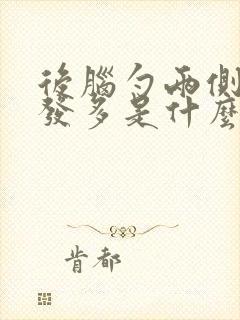 後腦勺兩側
發多是什麼
肯都